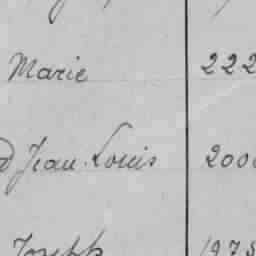 Marie 222
Jean Louis 200
Joseph 1975